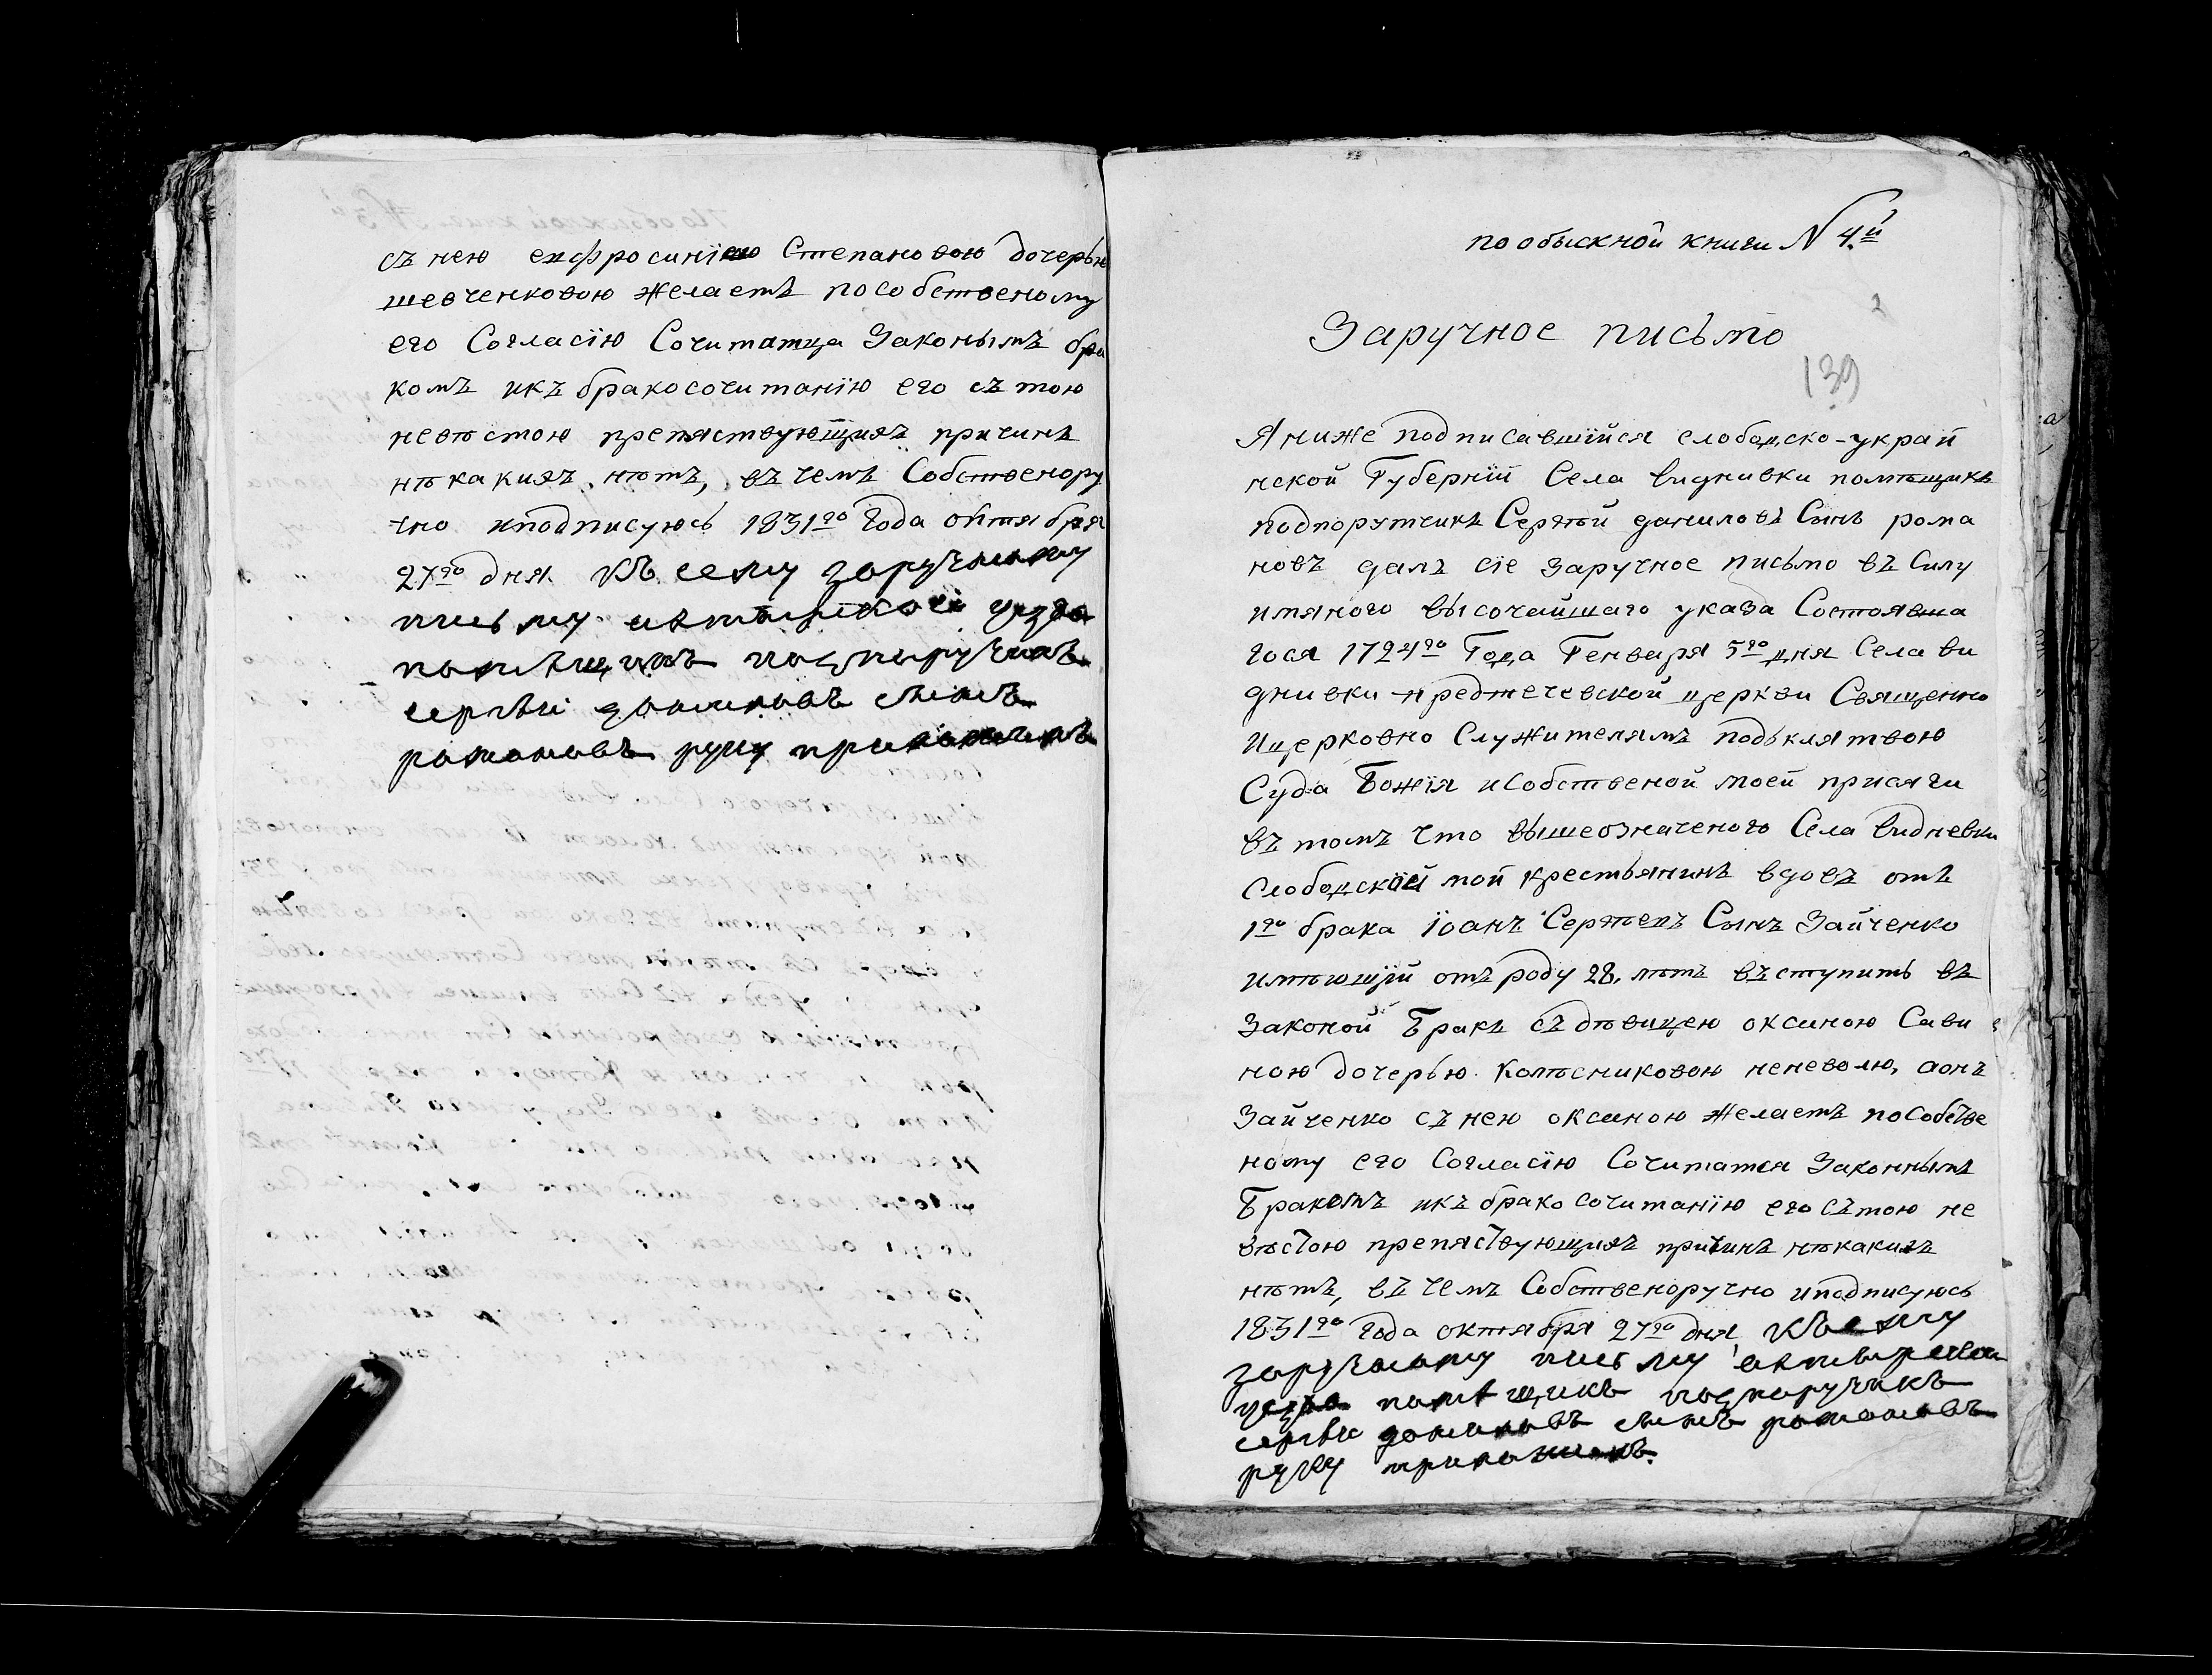 съ нею ехфросиніею Степановою дочерью
шевченковою желаетъ пособственому
его Согласію Сочитатца Законымъ бра
комъ икъ бракосочитанію его съ тою
невѣстою препяствующихъ причинъ
нѣкакихъ нѣтъ, въ чемъ Собственору
чно иподписуюсь 1831го Года октября
27го дня. Къ сему заручному
письму ахтырской уезда
помѣщикъ подпоручикъ
сергѣй даниловъ сынъ
романовъ руку приложилъ
по обыскной книги N 4.й
2
Заручное письмо
139
Я ниже подписавшійся слободско-украй
нской Губерніи Села видневки помѣщикъ
подпорутчикъ Сергѣй даниловъ Сынъ рома
новъ далъ сіе заручное письмо въ Силу
имяного высочайшаго указа Состоявша
гося 1724го Года Генваря 5го дня Села ви
дневки предтечевской церкви Священно
ицерковно Служителямъ подъ клятвою
Суда Божія исобственой моей присяги
въ томъ что вышеозначеного Села видневки
Слободской мой крестьянинъ вдовъ отъ
1го брака іоанъ Сергѣевъ Сынъ Зайченко
имѣющій отъ роду 28. лѣтъ въступить въ
Законой Бракъ съ дѣвицею оксиною Сави
ною дочерью Колѣсниковою неневолю, аонъ
Зайченко съ нею оксиною желаетъ пособстве
ному его Согласію Сочитатся Законнымъ
Бракомъ икъ брако сочитанію его сътою не
вѣстою препяствующихъ причинъ нѣкакихъ
нѣтъ, въ чемъ Собственоручно иподписуюсь
1831го Года октября 27го дня Къ сему
заручному письму ахтырской
уезда помѣщикъ подпоручикъ
сергѣй даниловъ сынъ романовъ
руку приложилъ.